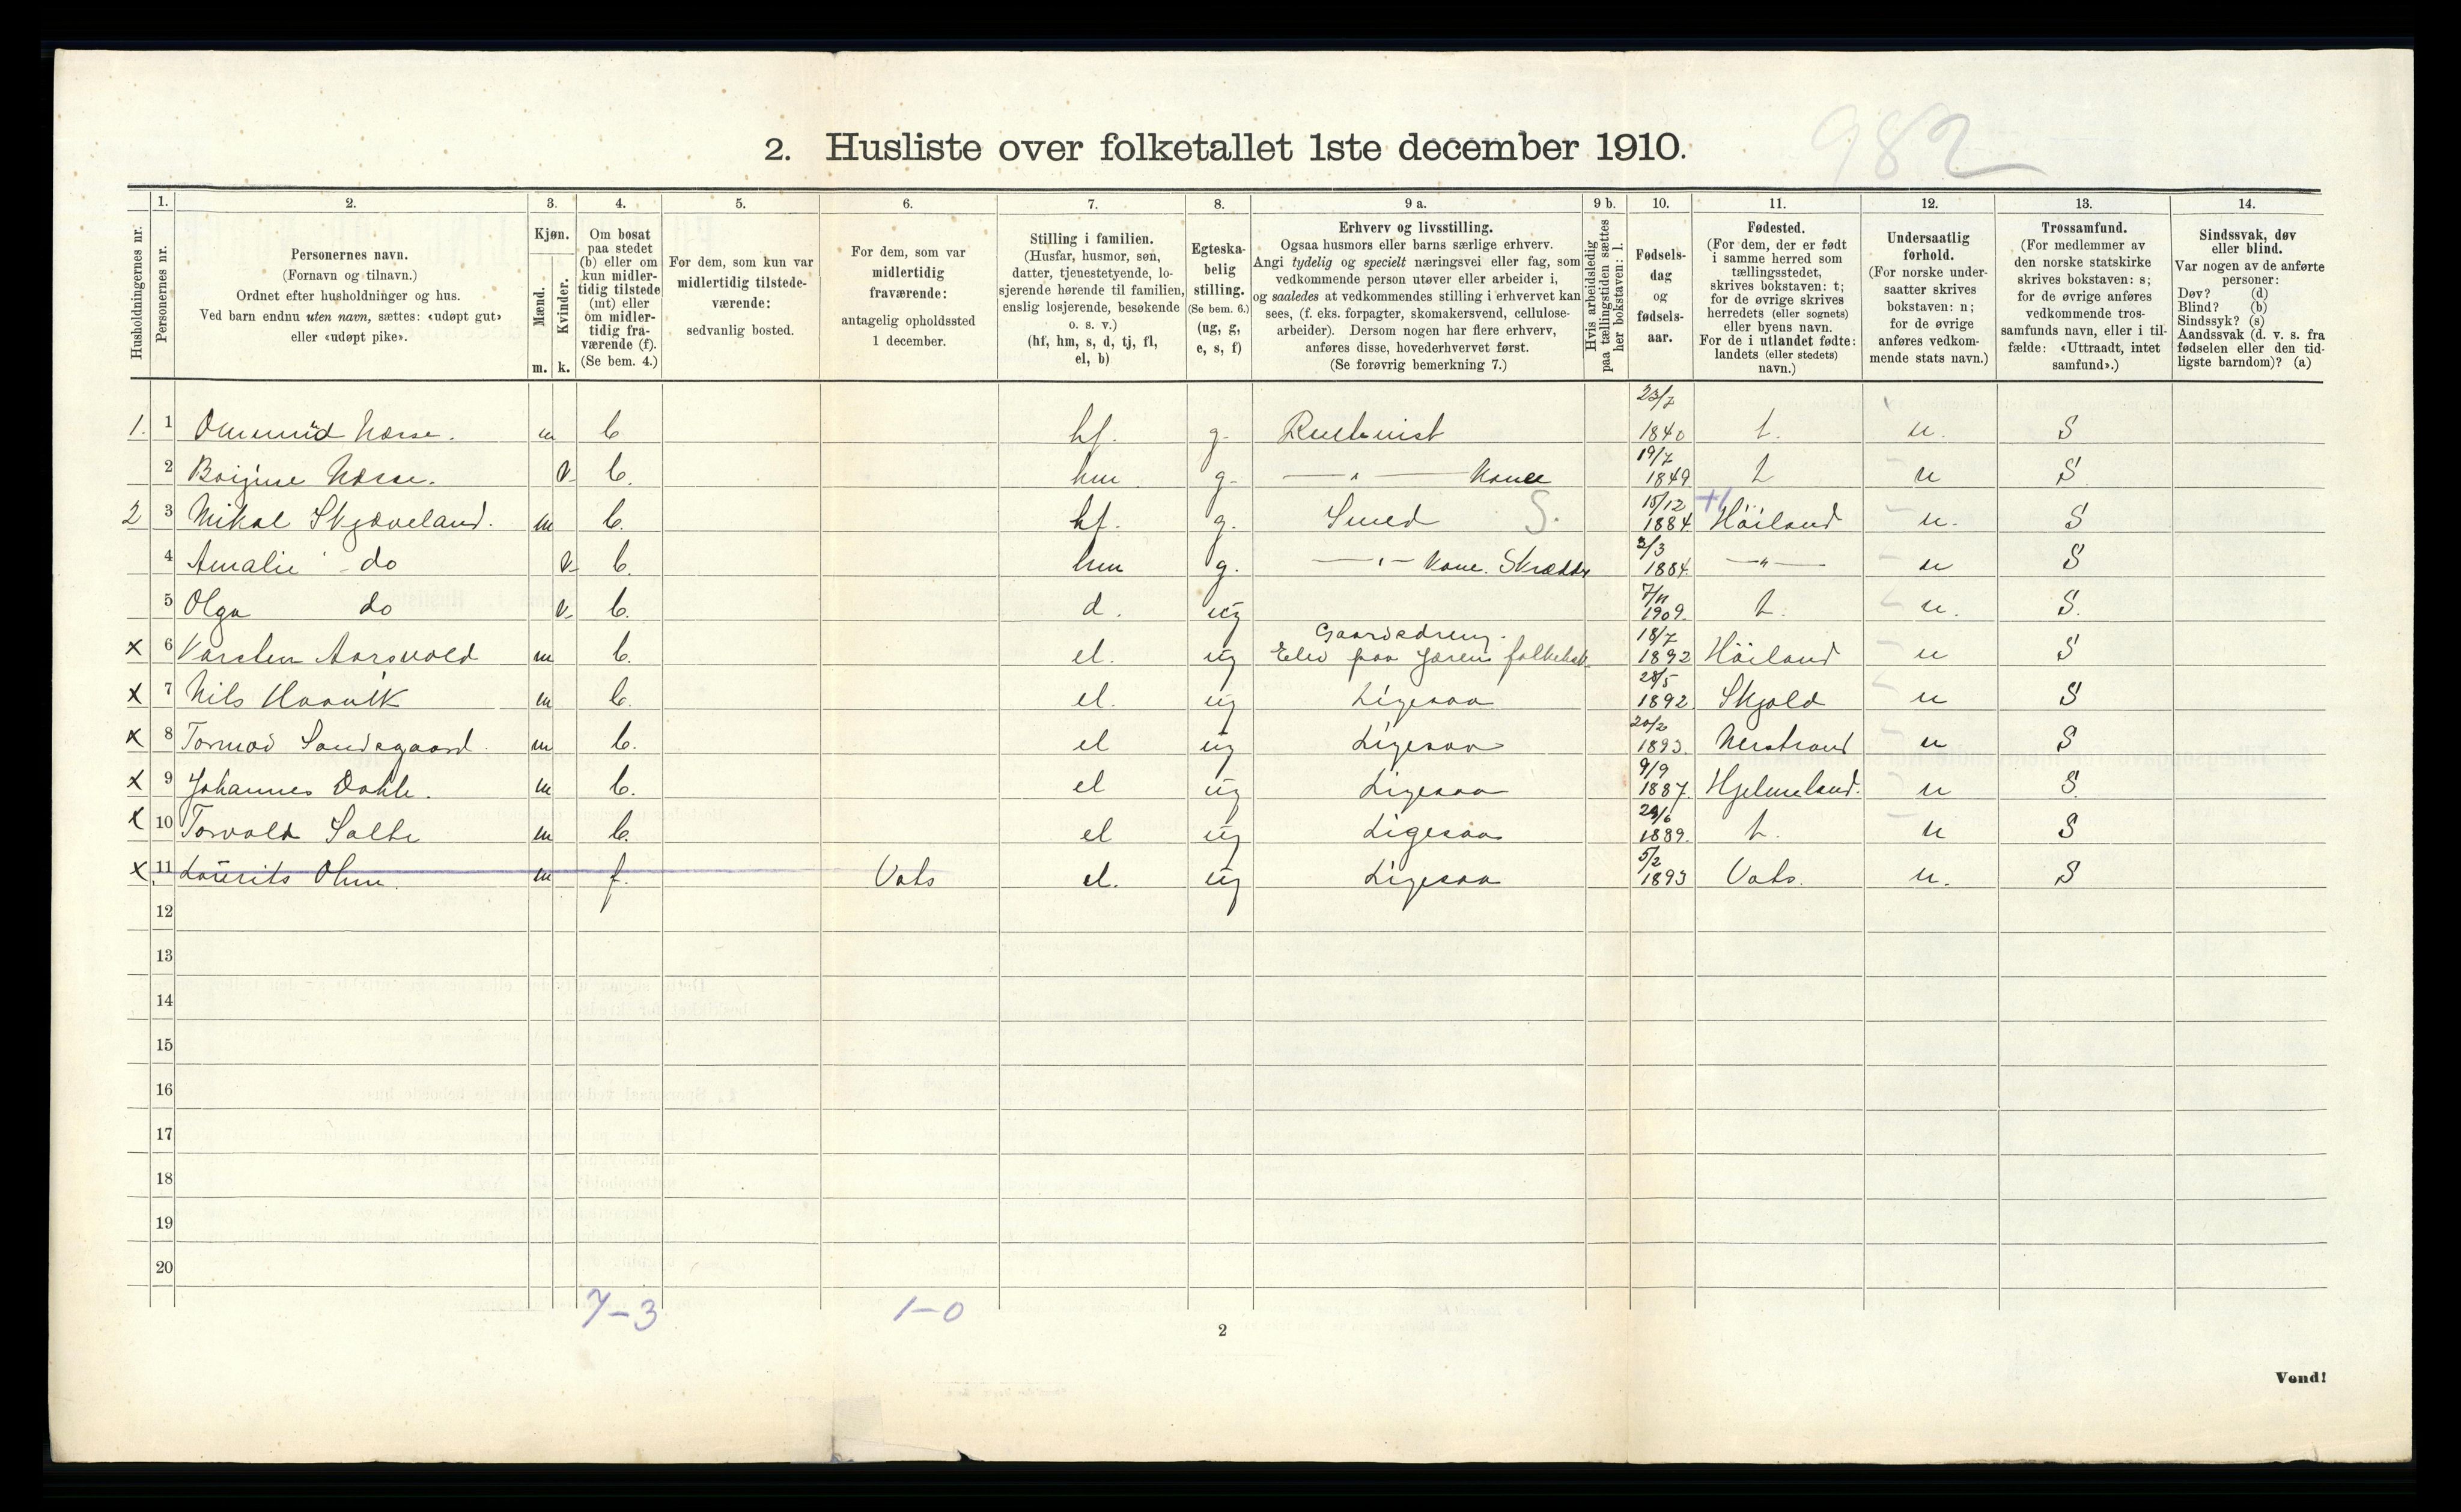 982
2. Husliste over folketallet 1ste december 1910.
Husholdningernes nr.
1.
Personernes nr.
2.
Personernes navn.
(Fornavn og tilnavn.)
Ordnet efter husholdninger og hus.
Ved barn endnu uten navn, sættes: «udøpt gut»
eller «udøpt pike».
3.
Kjøn.
Mænd.
Kvinder.
m. k.
4.
Om bosat
paa stedet
(b) eller om
kun midler-
tidig tilstede
(mt) eller
om midler-
tidig fra-
værende (f).
(Se bem. 4.)
5.
For dem, som kun var
midlertidig tilstede-
værende:
sedvanlig bosted.
6.
For dem, som var
midlertidig
fraværende:
antagelig opholdssted
1 december.
7.
Stilling i familien.
(Husfar, husmor, søn,
datter, tjenestetyende, lo-
sjerende hørende til familien,
enslig losjerende, besøkende
o. s. v.)
(hf, hm, s, d, tj, fl,
el, b)
8.
Egteska-
belig
stilling.
(Se bem. 6.)
(ug, g,
e, s, f)
9 a.
Erhverv og livsstilling.
Ogsaa husmors eller barns særlige erhverv.
Angi tydelig og specielt næringsvei eller fag, som
vedkommende person utøver eller arbeider i,
og saaledes at vedkommendes stilling i erhvervet kan
sees, (f. eks. forpagter, skomakersvend, cellulose-
arbeider). Dersom nogen har flere erhverv,
anføres disse, hovederhvervet først.
(Se forøvrig bemerkning 7.)
9 b.
Hvis arbeidsledig
paa tællingstiden sættes
her bokstaven: l.
10.
Fødsels-
dag
og
fødsels-
aar.
11.
Fødested.
(For dem, der er født
i samme herred som
tællingsstedet,
skrives bokstaven: t;
for de øvrige skrives
herredets (eller sognets)
eller byens navn.
For de i utlandet fødte:
landets (eller stedets)
navn.)
12.
Undersaatlig
forhold.
(For norske under-
saatter skrives
bokstaven: n;
for de øvrige
anføres vedkom-
mende stats navn.)
13.
Trossamfund.
(For medlemmer av
den norske statskirke
skrives bokstaven: s;
for de øvrige anføres
vedkommende tros-
samfunds navn, eller i til-
fælde: «Uttraadt, intet
samfund».)
14.
Sindssvak, døv
eller blind.
Var nogen av de anførte
personer:
Døv? (d)
Blind? (b)
Sindssyk? (s)
Aandssvak (d. v. s. fra
fødselen eller den tid-
ligste barndom)? (a)
1. 1 Ommund Næsse. m b hf. g. 23/7 1840 t. n. S
2 Næsse. k b. hm g. —„— Kone 19/7 1849 t n S
2 3 Mikal Skjæveland. m b. hf. g. Smed S. 15/12 1884. Höiland n. S
4 Amalie do k b. hm g. —„— Kone. 3/3 1884. —„— n S
5 Olga do k b. d. ug 7/11 1909. t. n. S.
x 6 Karsten Aarsvold m b. el. ug Gaardsdreng. Elev paa Jærens folkehsk. 18/7 1892 Höiland n S
x 7 Nils Haavik m b. el. ug Ligesaa 28/5 1892 Skjold n S
x 8 Tormod Sandsgaard. m b. el ug Ligesaa 20/2 1893. Nerstrand n S
x 9 Johannes Dahle. m b. el ug Ligesaa 9/9 1887. Hjelmeland. n S.
x 10 Torvald Salte m b. el ug Ligesaa 29/6 1889. t. n S
x 11 Laurits Ohm. m f. Vats el. ug Ligesaa 5/2 1893 Vats. n. S
12
13
14
15
16
17
18
19
20
7–3 1–0
2
Vend!